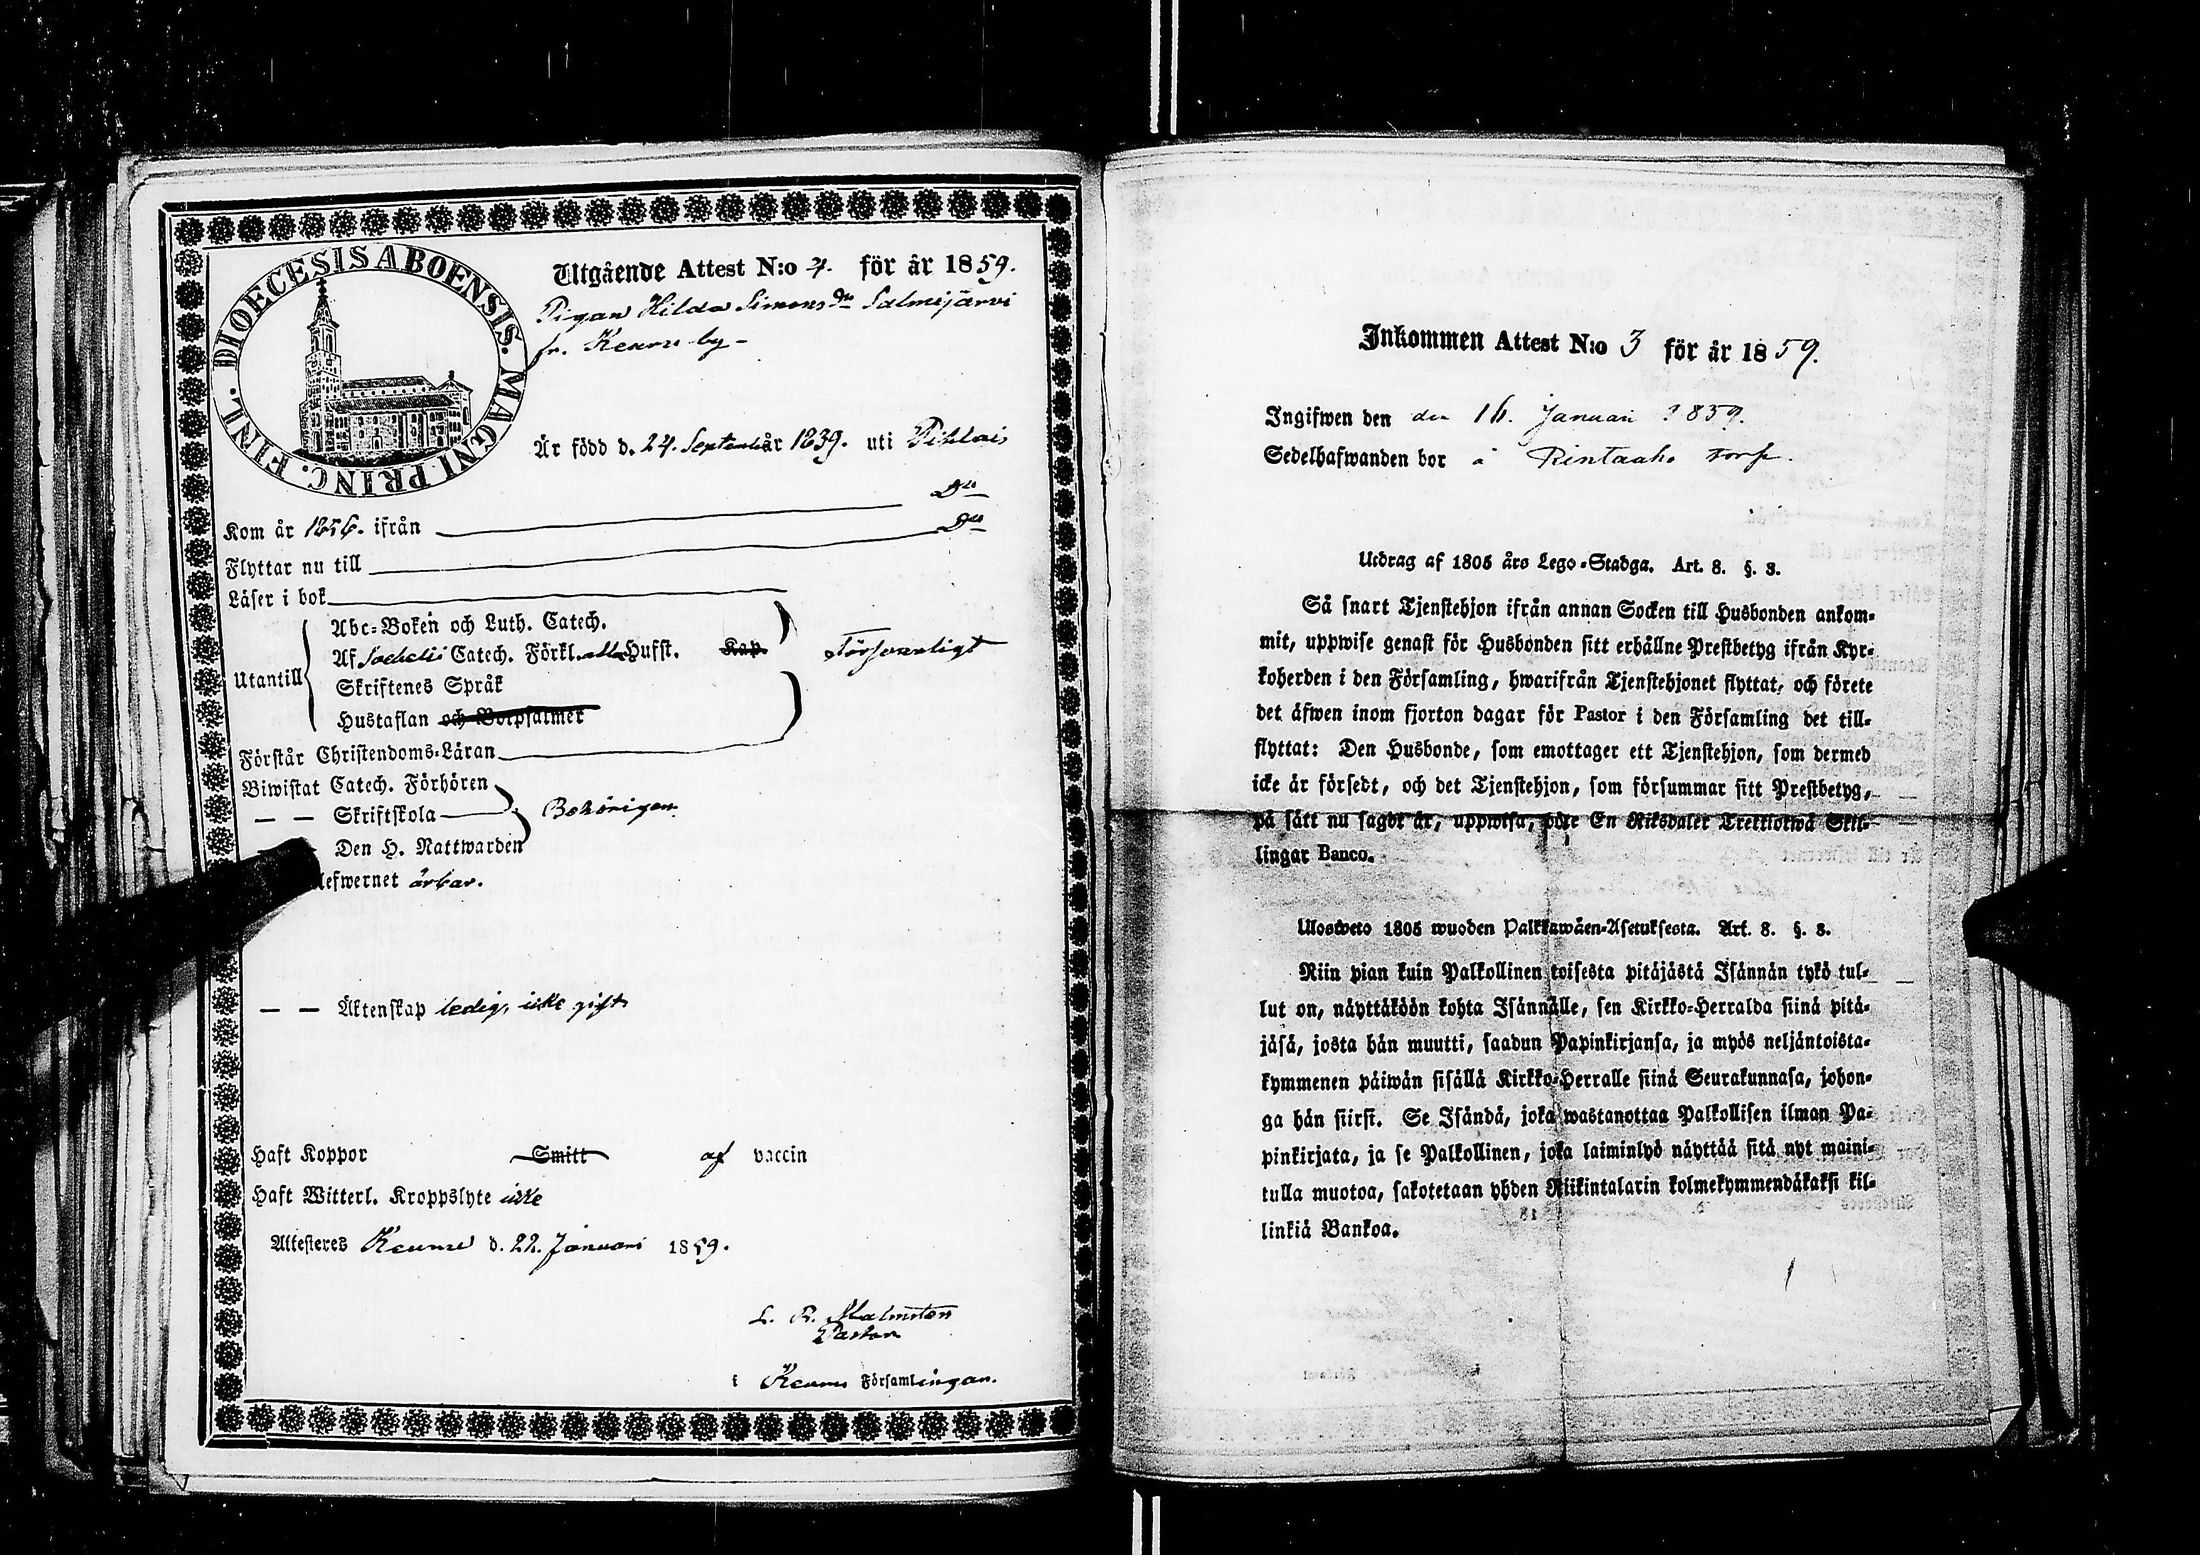 DIOECESIS ABOENSIS. MAGNI PRINC. FINL.
Utgående Attest N:o 4. för år 1859.
Pigan Hilda Simonsdr Salmijärvi
fr. Keuru by –
Är född d. 24. September år 1839. uti Pihlais
Kom år 1856. ifrån Do
Flyttar nu till Do
Läser i bok
Utantill
Abc-Boken och Luth. Catech.
Af Catech. Förkl. alla Hufst. Kap.
Skriftenes Språk
Hustaflan och Botpsalmer
Försvarligt
Förstår Christendoms-Läran
Biwistat Catech. Förhören
— — Skriftskola
Behörigen.
— Den H. Nattwarden
lefwernet ärbar.
— — Äktenskap ledig, icke gift
Haft Koppor Smitt af vaccin
Haft Witterl. Kroppslyte icke
Attesteres Keuru d. 22. Januari 1859.
L. R. Malmsten
Pastor
i Keuru Församlingan.
Inkommen Attest N:o 3 för år 1859.
Ingifwen den den 16. Januari 1859.
Sedelhafwanden bor å Rintaaho torp.
Utdrag af 1805 års Lego-Stadga. Art. 8. §. 3.
Så snart Tjenstehjon ifrån annan Socken till Husbonden ankom-
mit, uppwise genast för Husbonden sitt erhållne Prestbetyg ifrån Kyr-
koherden i den Församling, hwarifrån Tjenstehjonet flyttat, och förete
det äfwen inom fjorton dagar för Pastor i den Församling det till-
flyttat: Den Husbonde, som emottager ett Tjenstehjon, som dermed
icke är försedt, och det Tjenstehjon, som försummar sitt Prestbetyg,
på sätt nu sagdt är, uppwisa, böte En Riksdaler Trettiotwå Skil-
lingar Banco.
Ulosweto 1805 wuoden Palkkawäen-Asetuksesta. Art. 8. §. 3.
Niin pian kuin Palkollinen toisesta pitäjästä Isännän tykö tul-
lut on, näyttäköön kohta Isännälle, sen Kirkko-Herralda siinä pitä-
jäsä, josta hän muutti, saadun Papinkirjansa, ja myös neljäntoista-
kymmenen päiwän sisällä Kirkko-Herralle siinä Seurakunnasa, johon-
ga hän siirst. Se Isändä, joka wastanottaa Palkollisen ilman Pa-
pinkirjata, ja se Palkollinen, joka laiminlyö näyttää sitä nyt maini-
tulla muotoa, sakotetaan yhden Riikintalarin kolmekymmendäkaksi kil-
linkiä Bankoa.